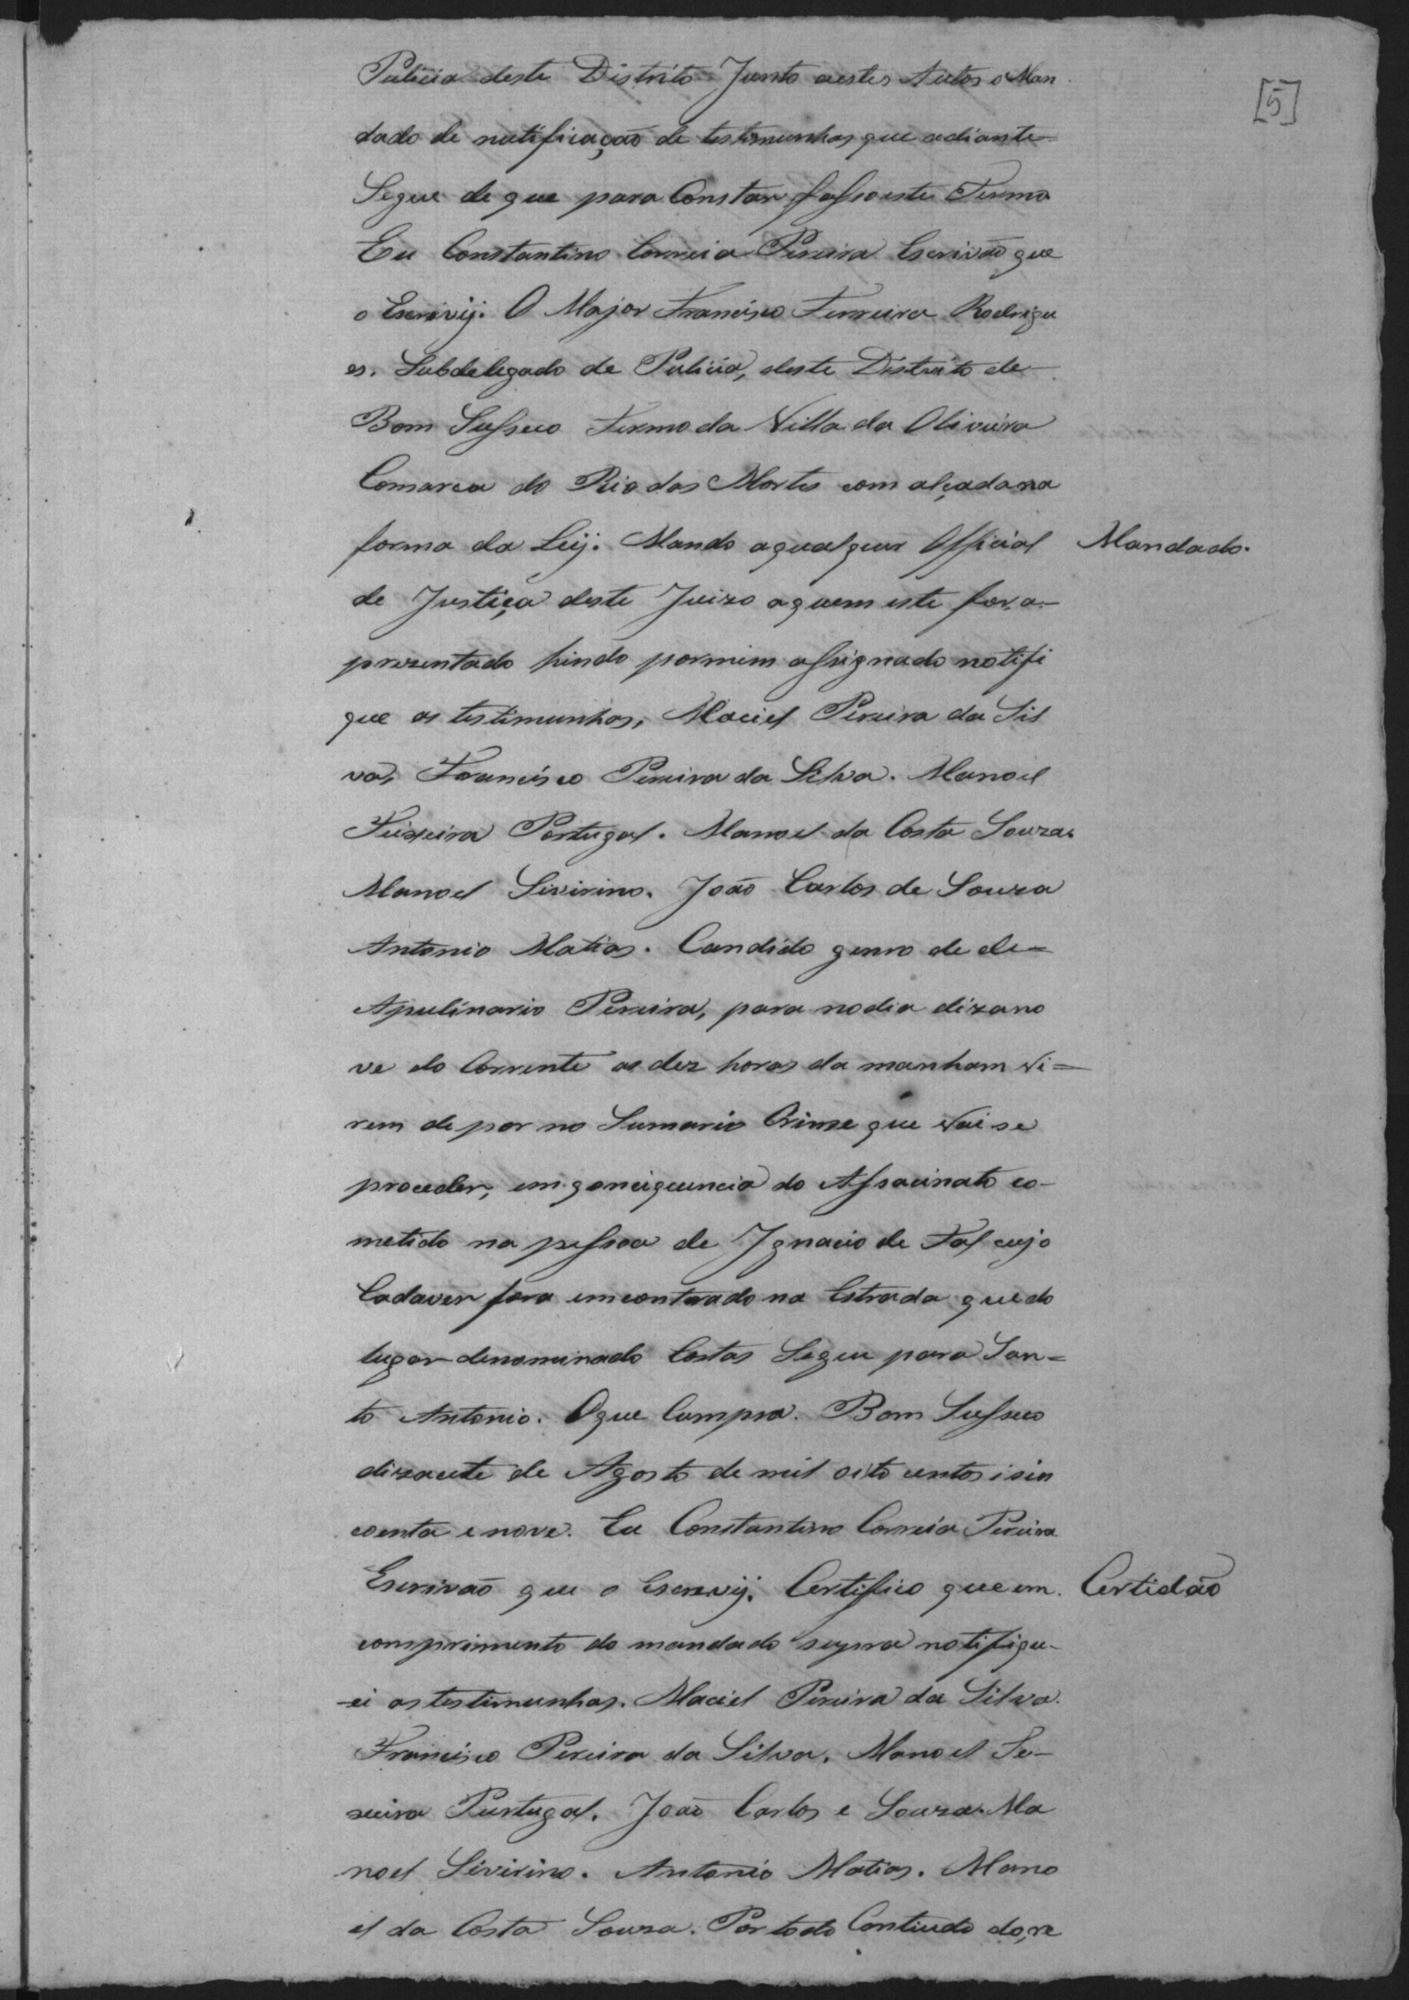 [5]
Pulicia deste Distrito Junto aestes Autos o Man
dado de notificação de testemunhas que adiante
Segue de que para Constar fasso este Termo
Eu Constantino Correia Pereira Escrivão que
o Escrivij. O Major Francisco Ferreira Rodrigu
es. Subdelegado de Pulicia, deste Distrito de
Bom Susseco Termo da Villa da Oliveira
Comarca do Rio das Mortes com alçada na
forma da Leij. Mando aqualquer Official Mandado.
de Justiça deste Juizo aquem este for a-
prezentado hindo pormim assignado notifi
que as testimunhas, Maciel Pereira da Sil
va, Francisco Pereira da Silva. Manoel
Teixeira Portugal. Manoel da Costa Souza.
Manoel Sivirino. João Carlos de Souza
Antonio Matias. Candido genro de de
Apulinario Pereira, para no dia dizano
ve do Corrente as dez horas da manham vi=
rem depor no Sumario Crime que vai se
proceder, em conciquencia do Assacinato co-
metido na pessoa de Ignacio de Tal cujo
Cadaver fora emcontrado na Estrada que do
lugar denominado Costas Segue para San=
to Antonio. Oque Cumpra. Bom Susseco
dizacete de Agosto de mil oito centos i sin
coenta e nove. Eu Constantino Correia Pereira
Escrivão que o Escrevij. Certifico que em Certidão
comprimento do mandado supra notifiqu-
-ei as testimunhas. Maciel Pereira da Silva.
Francisco Pereira da Silva. Manoel Te-
xeira Purtugal. João Carlos e Souza. Ma
noel Sivirino. Antonio Matias. Mano
el da Costa Souza. Por todo Contiudo do, re